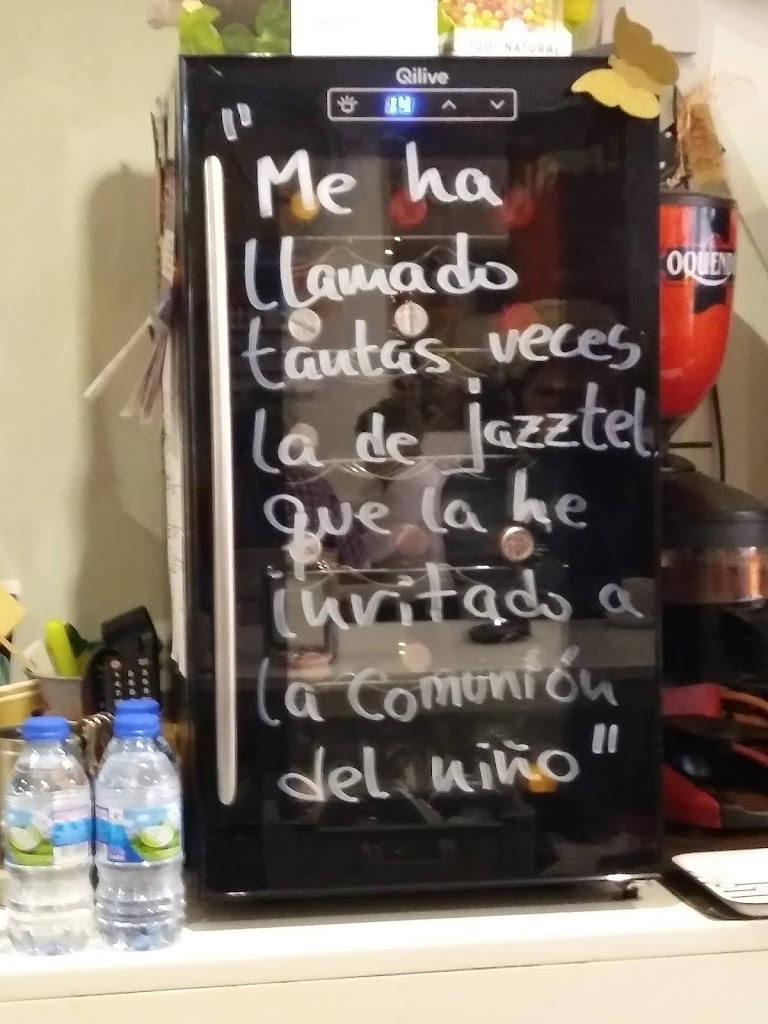 100% NATURAL
Qilive
14
"Me ha
llamado
tantas veces
la de jazztel
que la he
invitado a
la comunión
del niño"
OQUEN